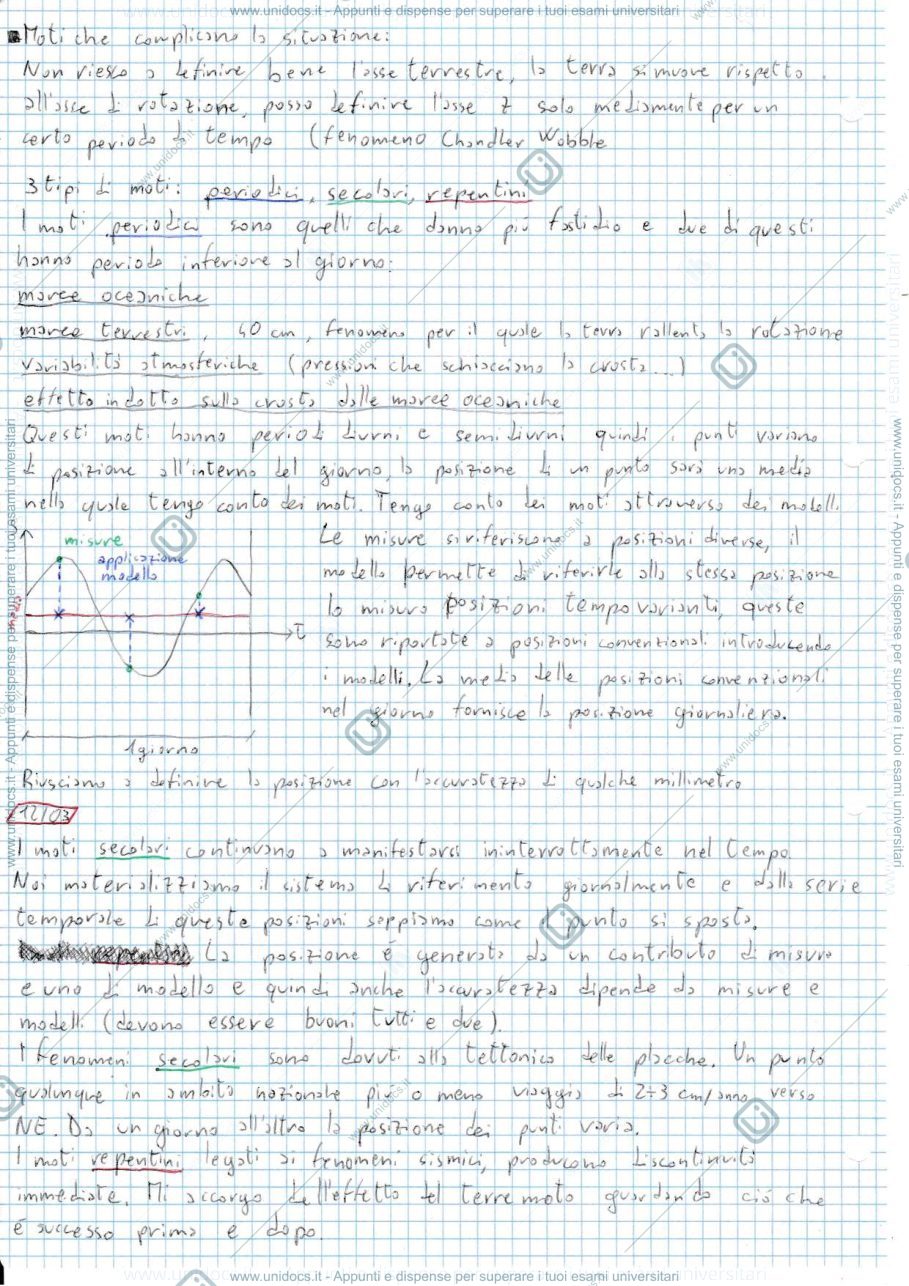 www.unidocs.it - Appunti e dispense per superare i tuoi esami universitari
Moti che complicano la situazione:
Non riesco a definire bene l'asse terrestre, la terra si muove rispetto
all'asse di rotazione, posso definire l'asse Z solo mediamente per un
certo periodo di tempo (fenomeno Chandler Wobble
3 tipi di moti: periodici, secolari, repentini
I moti periodici sono quelli che danno più fastidio e due di questi
hanno periodo inferiore al giorno:
maree oceaniche
maree terrestri, 40 cm, fenomeno per il quale la terra rallenta la rotazione
variabilità atmosferiche (pressioni che schiacciano la crosta...)
effetto indotto sulla crosta dalle maree oceaniche
Questi moti hanno periodi diurni e semidiurni quindi i punti variano
di posizione all'interno del giorno, la posizione di un punto sarà una media
nella quale tengo conto dei moti. Tengo conto dei moti attraverso dei modelli.
misure
applicazione
modello
t
1 giorno
Le misure si riferiscono a posizioni diverse, il
modello permette di riferirle alla stessa posizione
la misura posizioni tempo varianti, queste
sono riportate a posizioni convenzionali introducendo
i modelli. La media delle posizioni convenzionali
nel giorno fornisce la posizione giornaliera.
Riusciamo a definire la posizione con l'accuratezza di qualche millimetro
12/03
I moti secolari continuano a manifestarsi ininterrottamente nel tempo.
Noi materializziamo il sistema di riferimento giornalmente e dalla serie
temporale di queste posizioni sappiamo come il punto si sposta.
La posizione é generata da un contributo di misura
e uno di modello e quindi anche l'accuratezza dipende da misure e
modelli (devono essere buoni tutti e due).
I fenomeni secolari sono dovuti alla tettonica delle placche. Un punto
qualunque in ambito nazionale più o meno viaggia di 2÷3 cm/anno verso
NE. Da un giorno all'altro la posizione dei punti varia.
I moti repentini legati ai fenomeni sismici, producono discontinuità
immediate. Mi accorgo dell'effetto del terremoto guardando ciò che
é successo prima e dopo.
www.unidocs.it - Appunti e dispense per superare i tuoi esami universitari